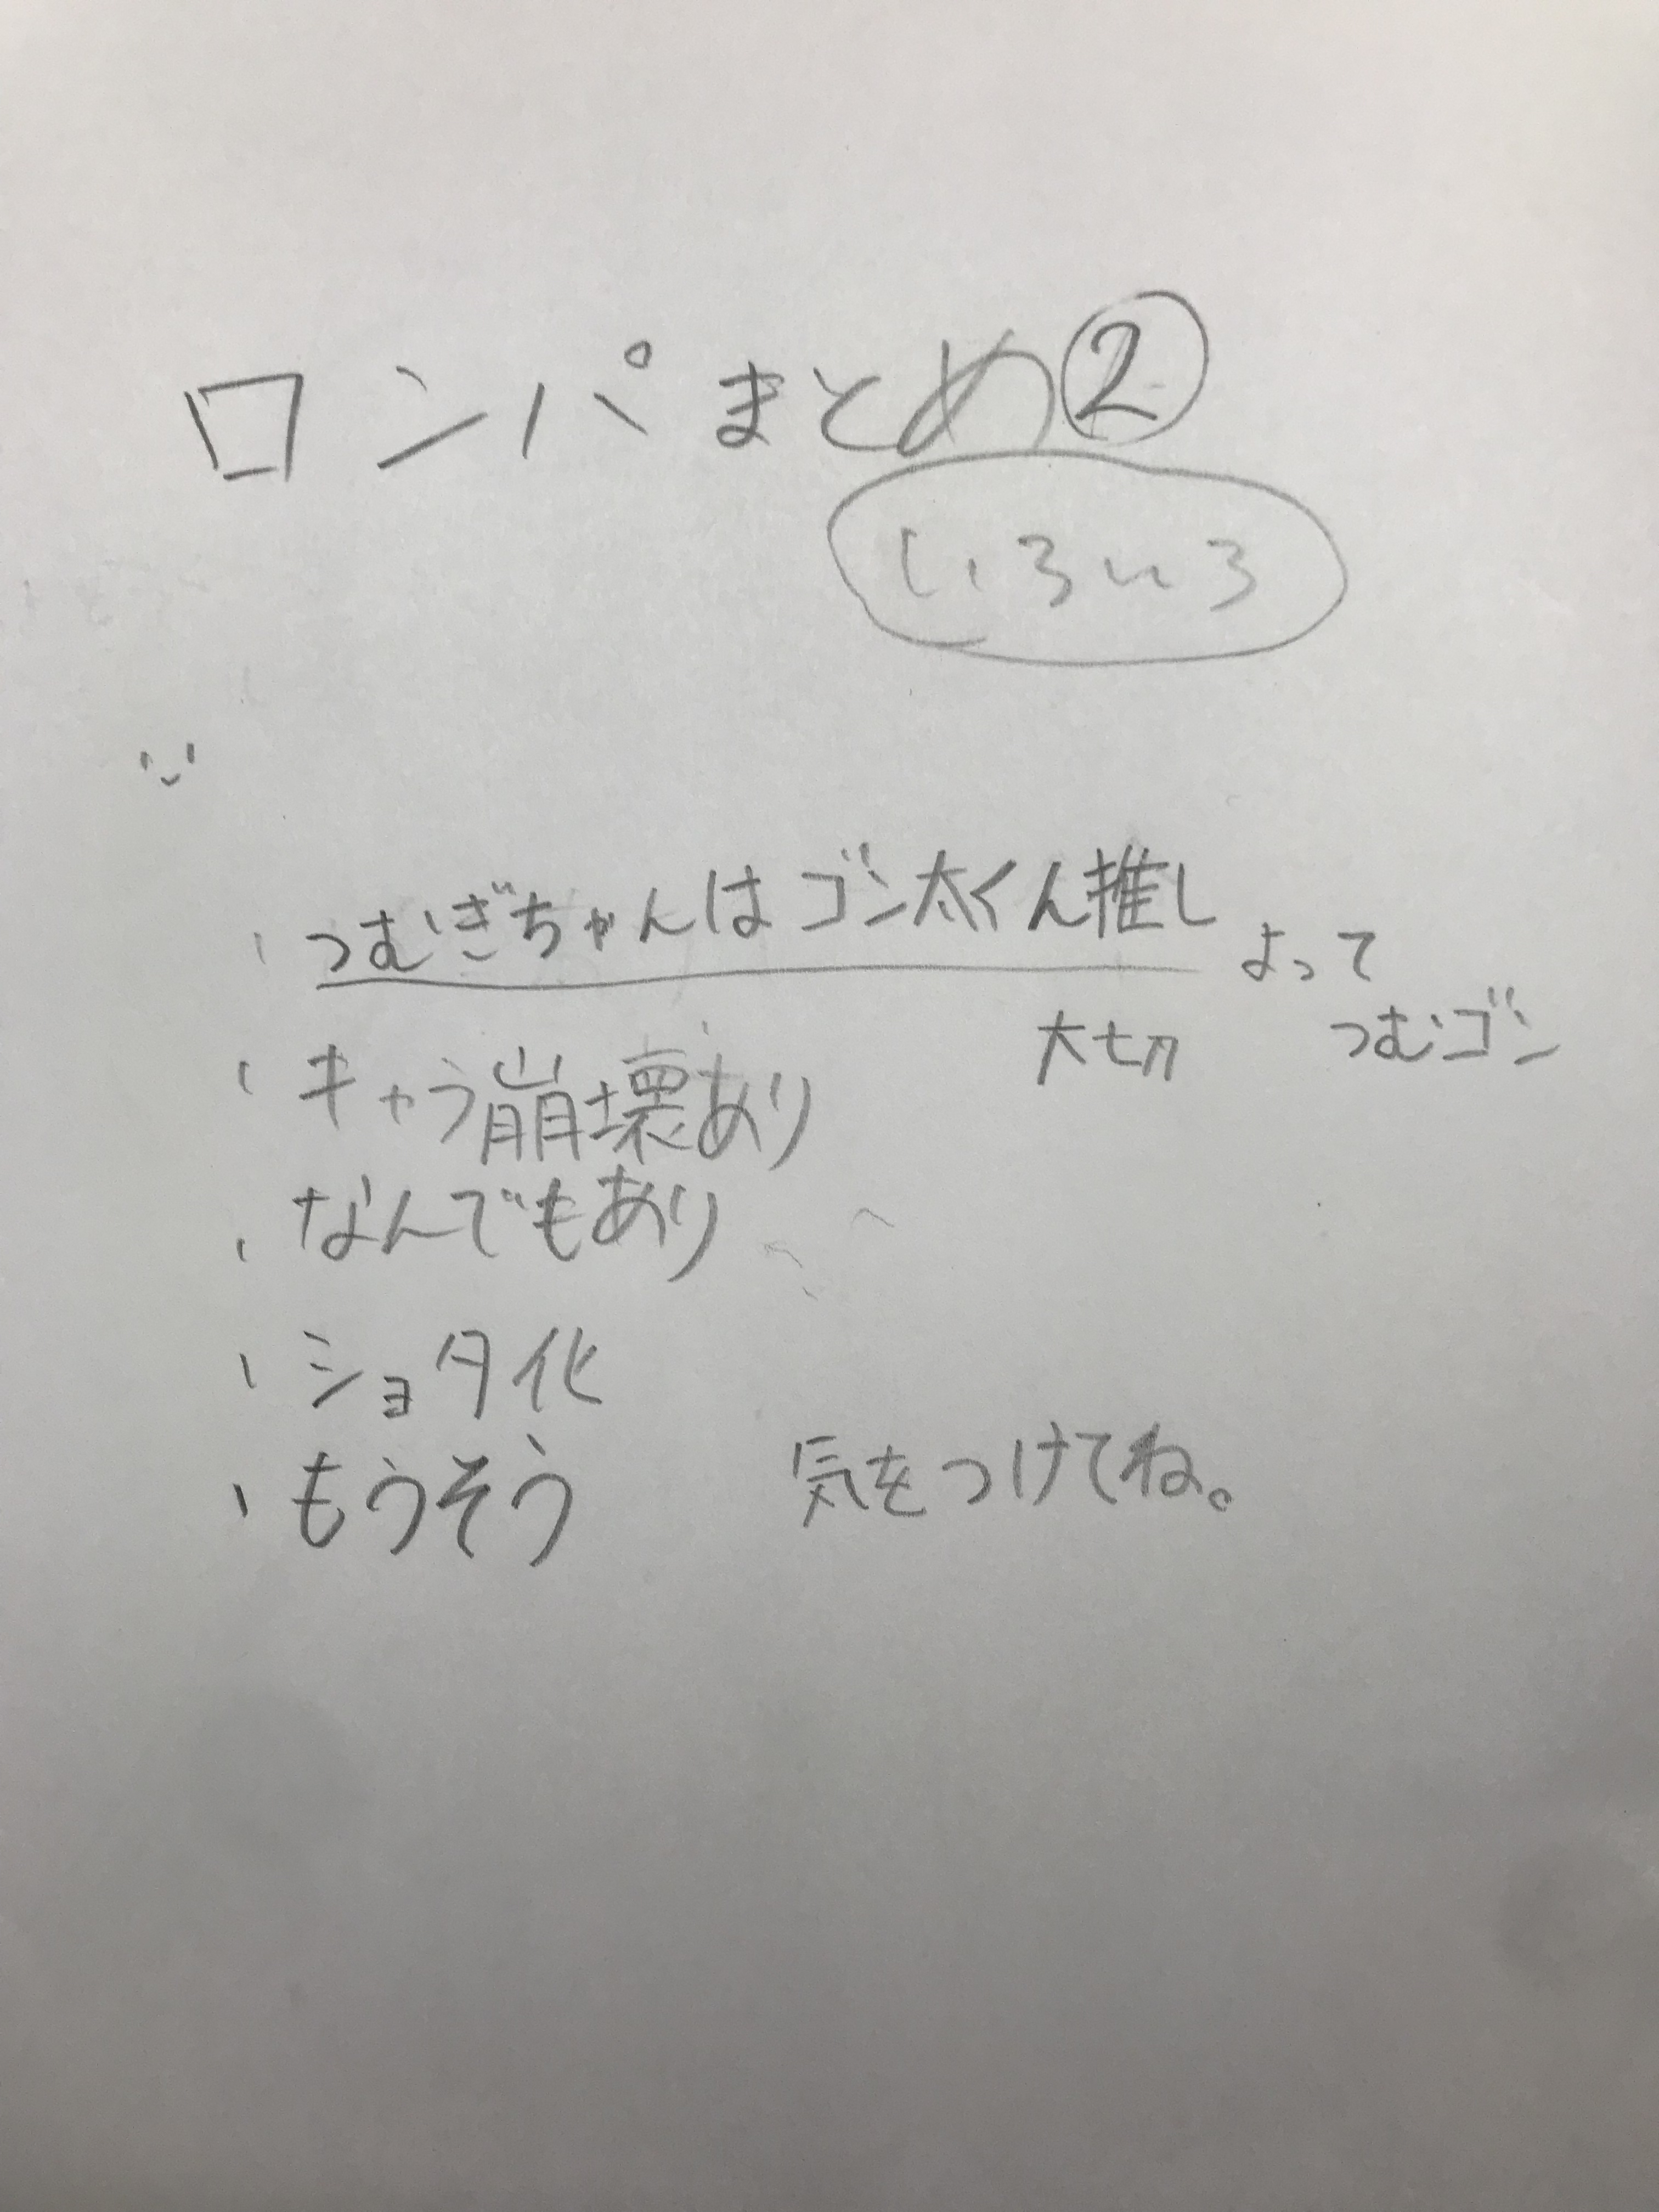 ロンパまとめ②
いろいろ
・つむぎちゃんはゴン太くん推し よって
大切 つむゴン
・キャラ崩壊あり
・なんでもあり
・ショタ化
・もうそう 気をつけてね。